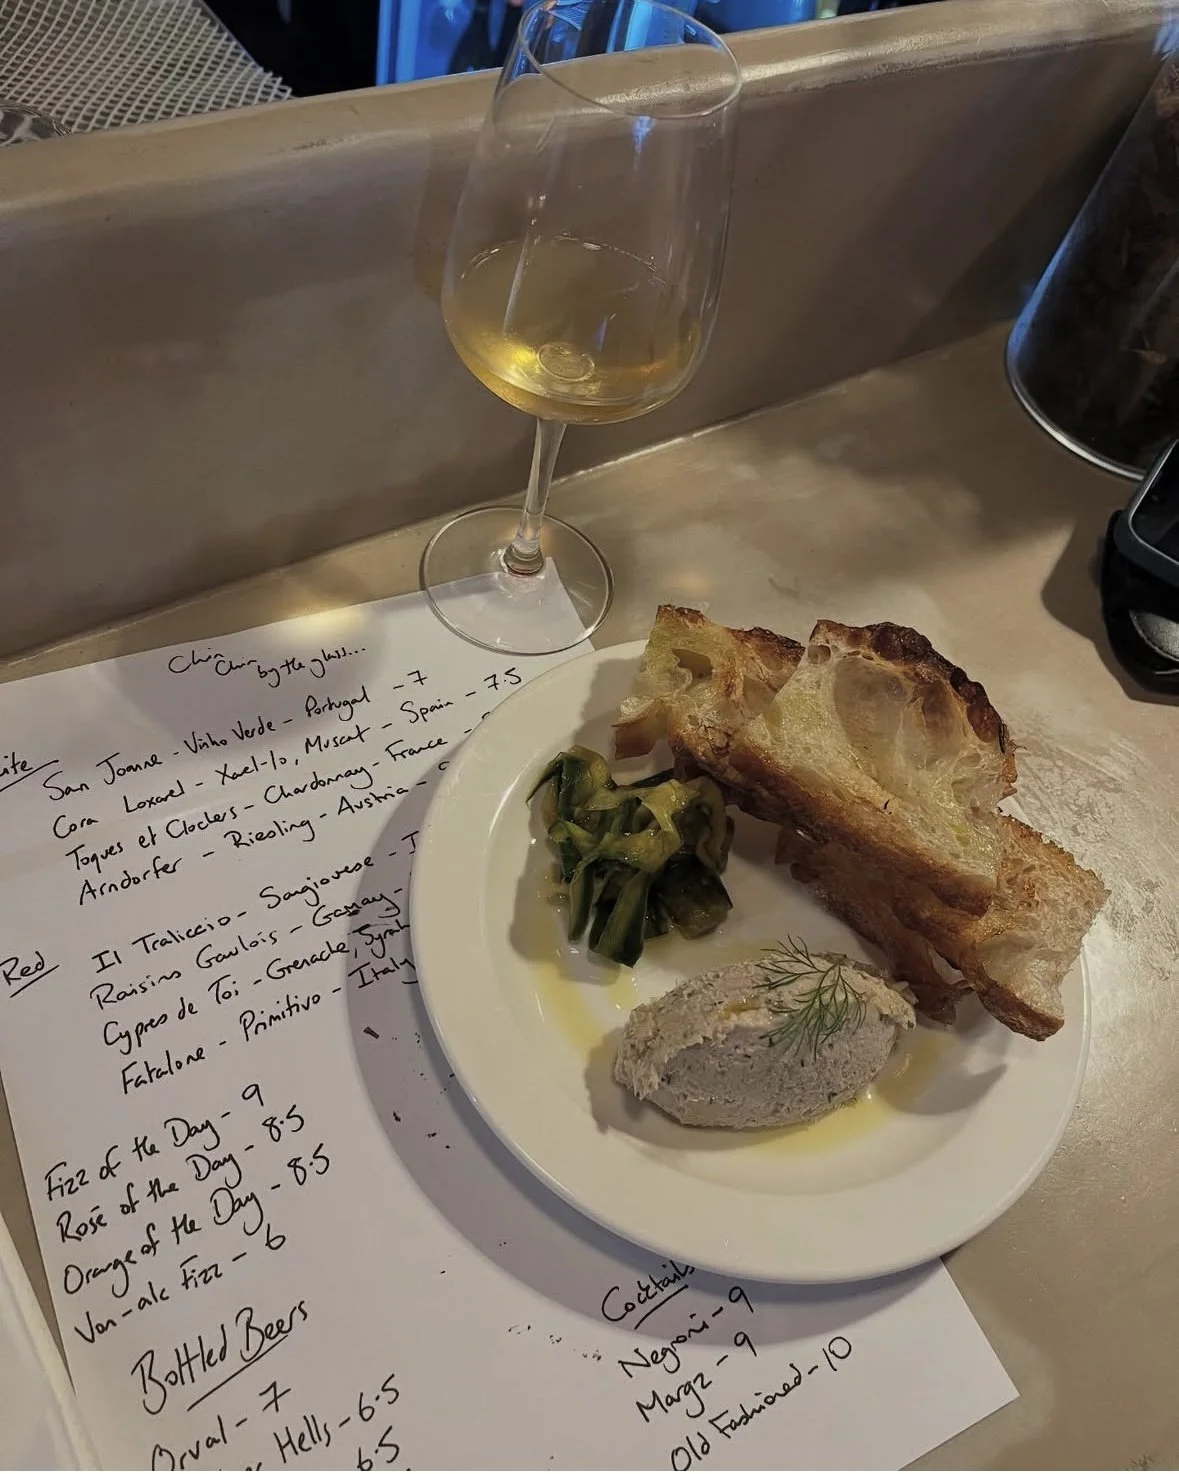 Chin Chin by the glass...
San Joanne - Vinho Verde - Portugal - 7
Cora Loxarel - Xarel-lo, Muscat - Spain - 7.5
Toques et Clochers - Chardonnay - France -
Arndorfer - Riesling - Austria -
Red
Il Traliccio - Sangiovese -
Raisins Gaulois - Gamay -
Cypres de Toi - Grenache, Syrah
Fatalone - Primitivo - Italy
Fizz of the Day - 9
Rosé of the Day - 8.5
Orange of the Day - 8.5
Non-alc Fizz - 6
Bottled Beers
Orval - 7
Hells - 6.5
6.5
Cocktails
Negroni - 9
Margz - 9
Old Fashioned - 10